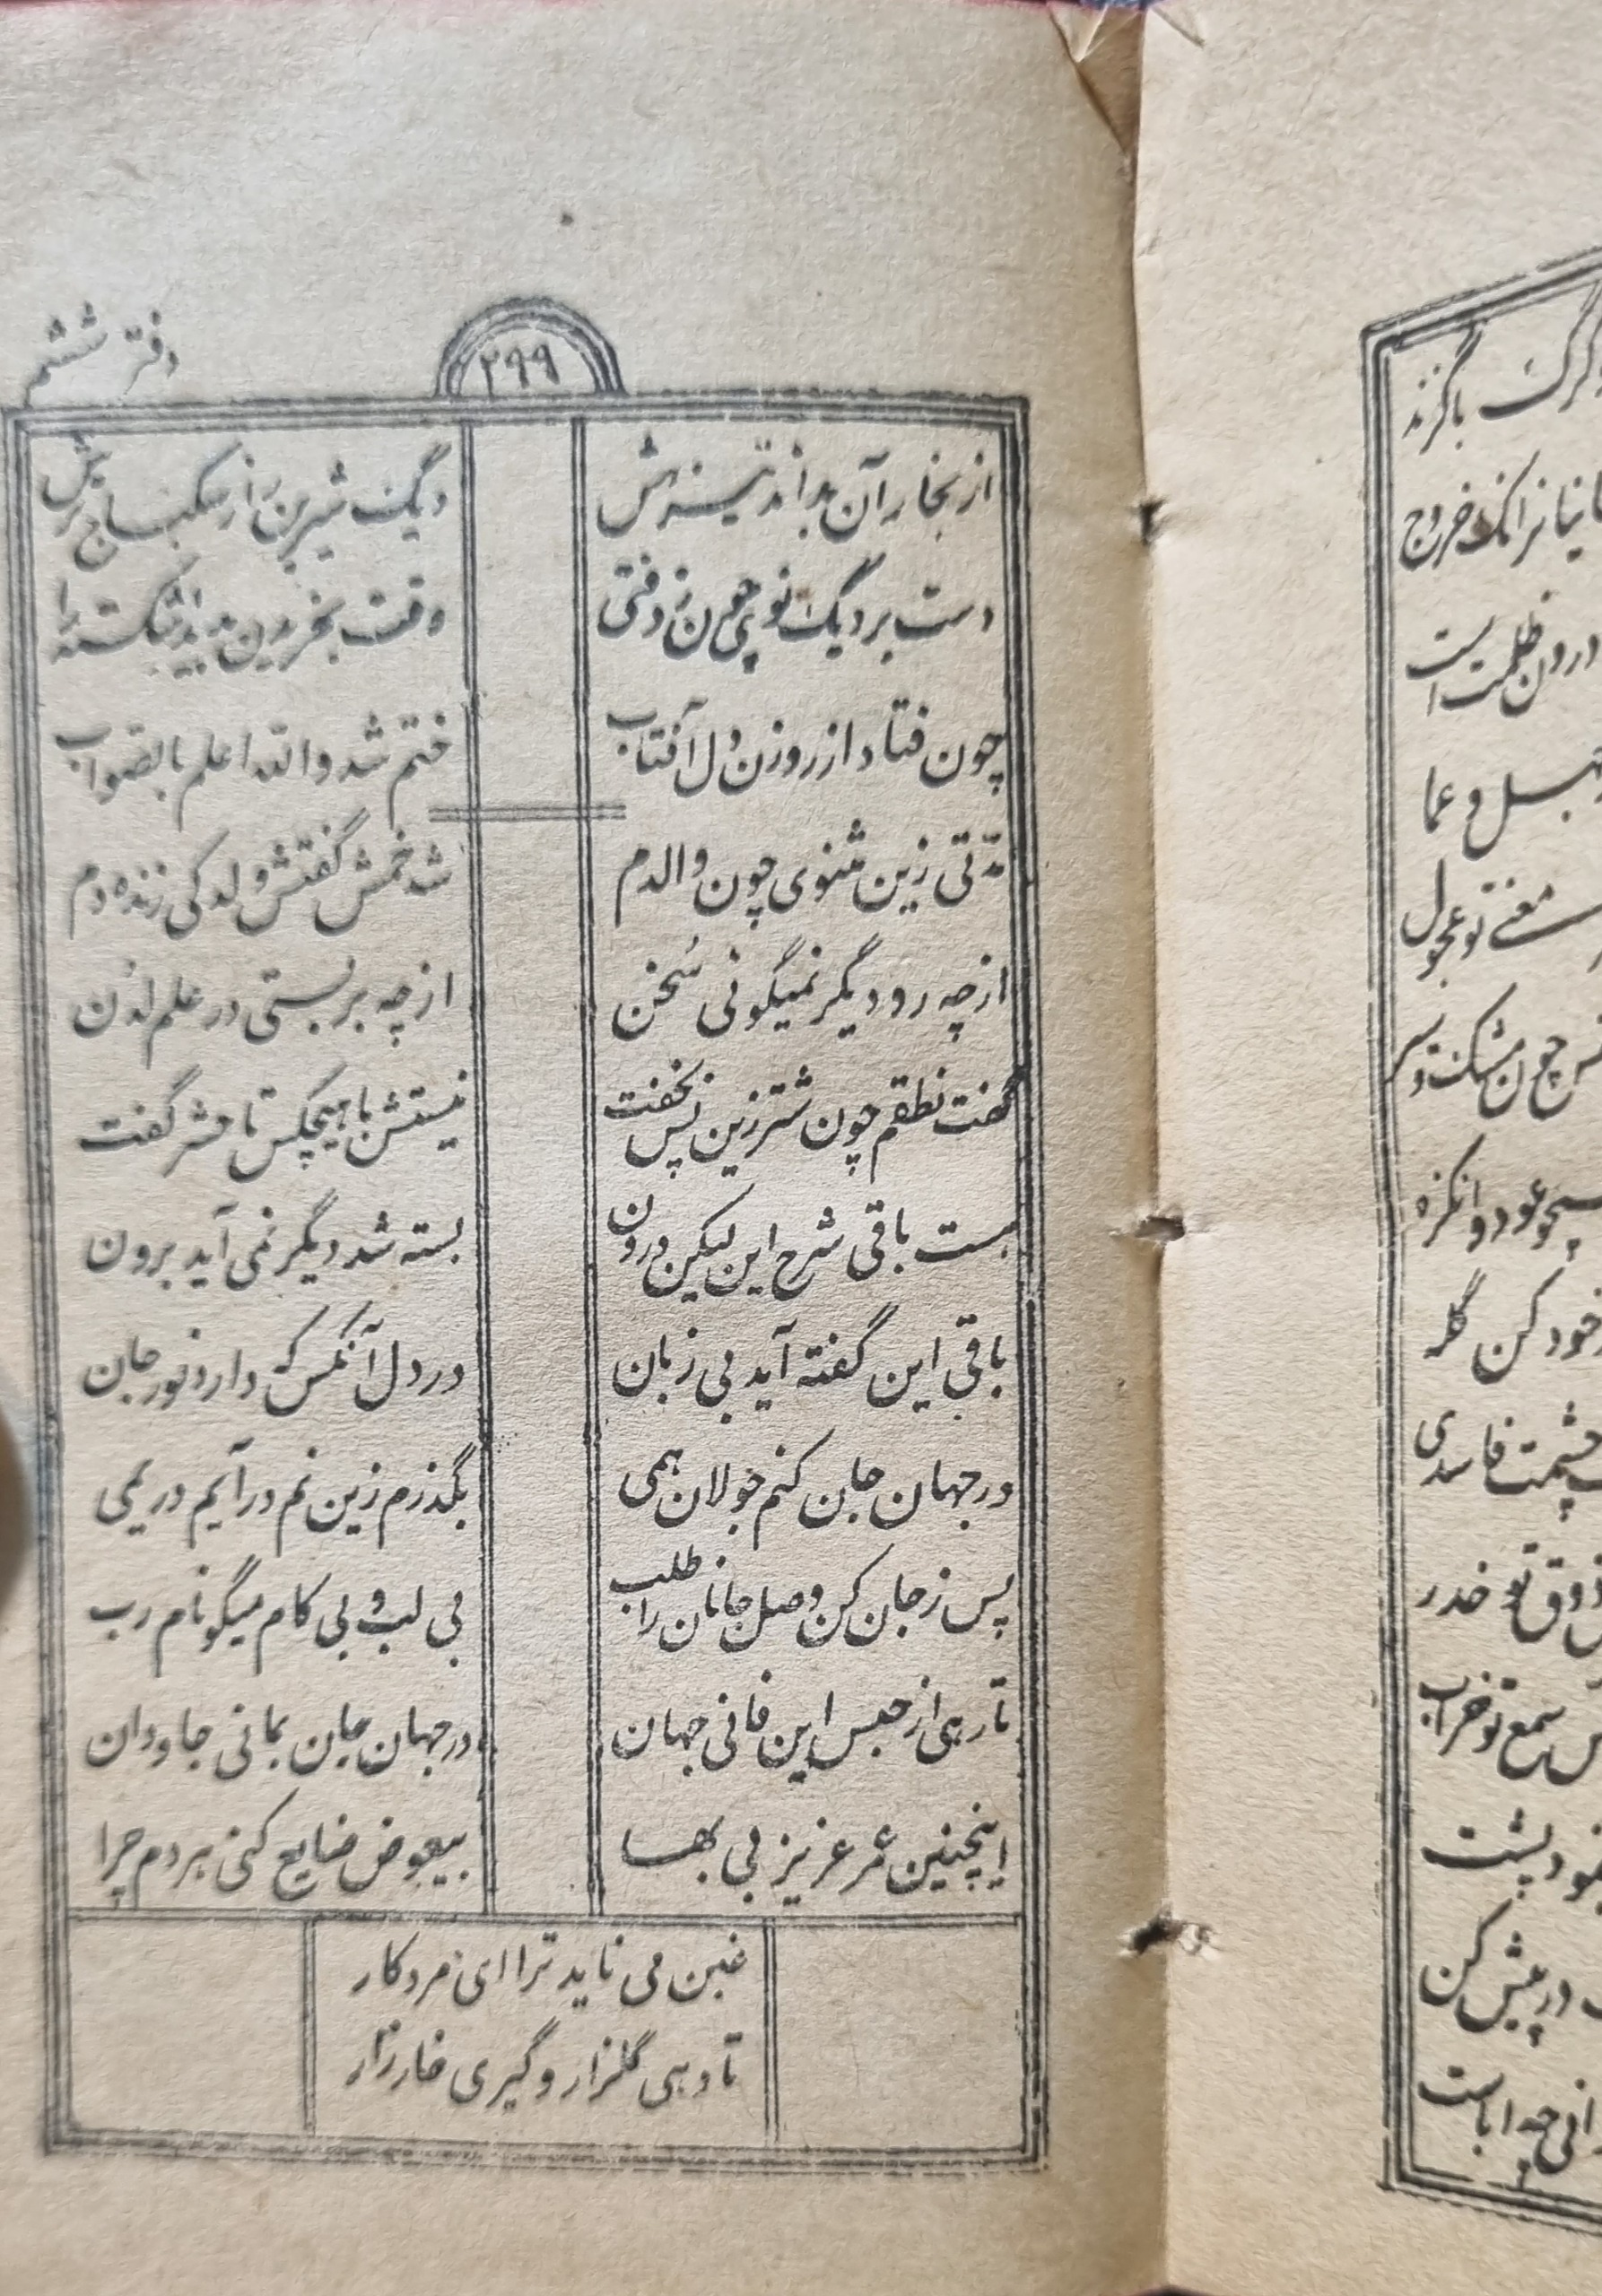 دفتر ششم
۲۹۹
از بخار آن بداند تیزهش دیگ شیرین را ز سکباج ترش
دست بر دیگ نوی چون زد فتی وقت بخریدن بدید اشکسته را
چون فتاد از روزن دل آفتاب ختم شد والله اعلم بالصواب
مدّتی زین مثنوی چون والدم شد خمش گفتش ولد کی زنده دم
از چه رو دیگر نمیگوئی سُخن از چه بر بستی در علم لدُن
گفت نطقم چون شتر زین پس بخفت نیستش با هیچکس تا حشر گفت
هست باقی شرح این لیکن درون بسته شد دیگر نمی آید برون
باقی این گفته آید بی زبان در دل آنکس که دارد نور جان
در جهان جان کنم جولان همی بگذرم زین نم در آیم در یمی
پس ز جان کن وصل جانان را طلب بی لب و بی کام میگو نام رب
تا رهی از حبس این فانی جهان در جهان جان بمانی جاودان
اینچنین عمر عزیز بی بها بیعوض ضایع کنی هر دم چرا
غبن می ناید ترا ای مرد کار
تا دهی گلزار و گیری خارزار
گرگ باگزند
خروج
درون ظلمت است
و عما
تو عجول
چون مشک و سیر
خود کن گله
چشمت فاسدی
ذوق تو خدر
سمع تو خراب
پشت
در پیش کن